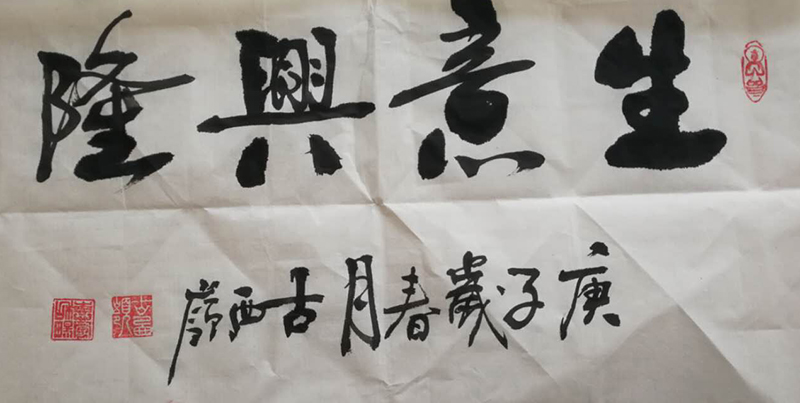 生意興隆
庚子歲春月古西嶺